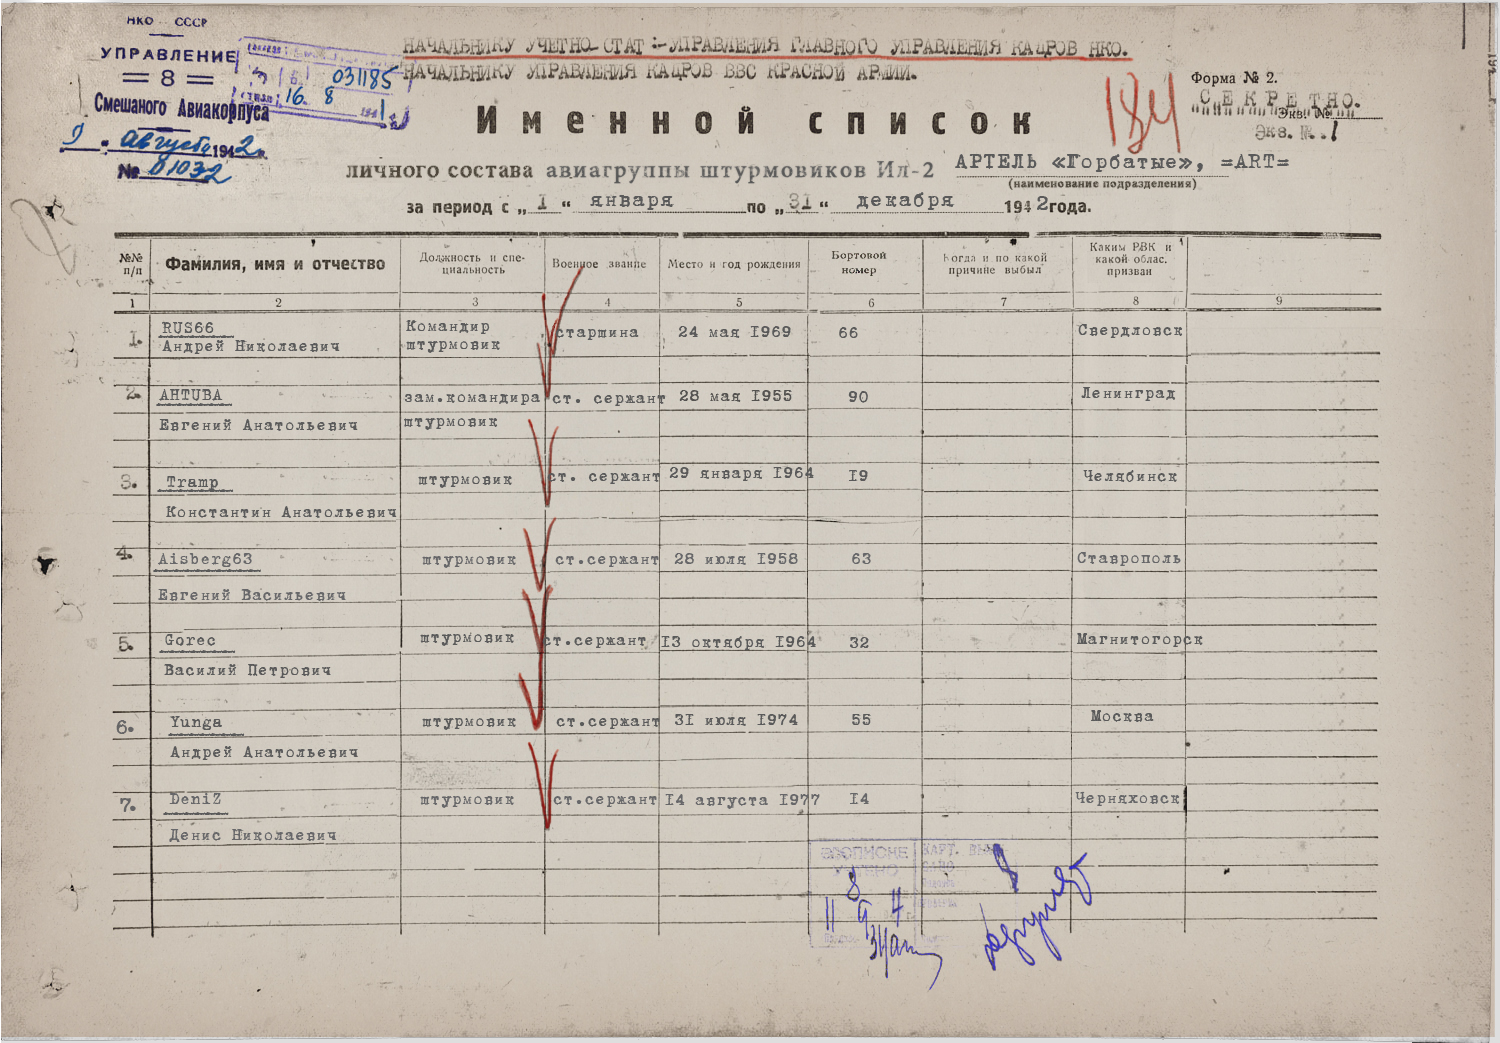 НКО СССР
УПРАВЛЕНИЕ
= 8 =
Смешаного Авиакорпуса
9 " августа 1942 г.
№ 01032
031185
16. 8 1941
НАЧАЛЬНИКУ УЧЕТНО-СТАТ:-УПРАВЛЕНИЯ ГЛАВНОГО УПРАВЛЕНИЯ КАДРОВ НКО.
НАЧАЛЬНИКУ УПРАВЛЕНИЯ КАДРОВ ВВС КРАСНОЙ АРМИИ.
184
Форма № 2.
СЕКРЕТНО.
Экз. №
Экз. №..1
Именной список
личного состава авиагруппы штурмовиков Ил-2 АРТЕЛЬ «Горбатые», =ART=
(наименование подразделения)
за период с „ I " января по „ 31 " декабря 1942 года.
№№ п/п
Фамилия, имя и отчество
Должность и спе-
циальность
Военное звание
Место и год рождения
Бортовой
номер
Когда и по какой
причине выбыл
Каким РВК и
какой облас.
призван
1 2 3 4 5 6 7 8 9
1. RUS66 Командир старшина 24 мая 1969 66 Свердловск
Андрей Николаевич штурмовик
2. AHTUBA зам.командира ст. сержант 28 мая 1955 90 Ленинград
Евгений Анатольевич штурмовик
3. Tramp штурмовик ст. сержант 29 января 1964 19 Челябинск
Константин Анатольевич
4. Aisberg63 штурмовик ст.сержант 28 июля 1958 63 Ставрополь
Евгений Васильевич
5. Gorec штурмовик ст.сержант 13 октября 1964 32 Магнитогорск
Василий Петрович
6. Yunga штурмовик ст.сержант 31 июля 1974 55 Москва
Андрей Анатольевич
7. DeniZ штурмовик ст.сержант 14 августа 1977 14 Черняховск
Денис Николаевич